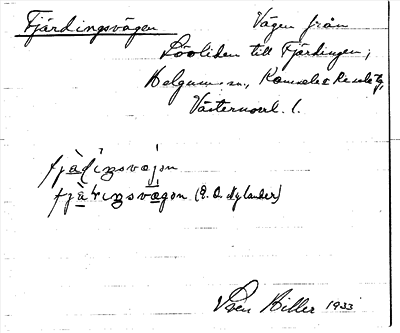 Fjärdingsvägen Vägen från
Lövliden till Fjärdingen,
Helgum sn,
Västernorrl. l.
fjä̀ḍiŋsvæjən
fjä̀ṭiŋsvä̀gən (E. O. Nylander)
Sven Hiller 1933